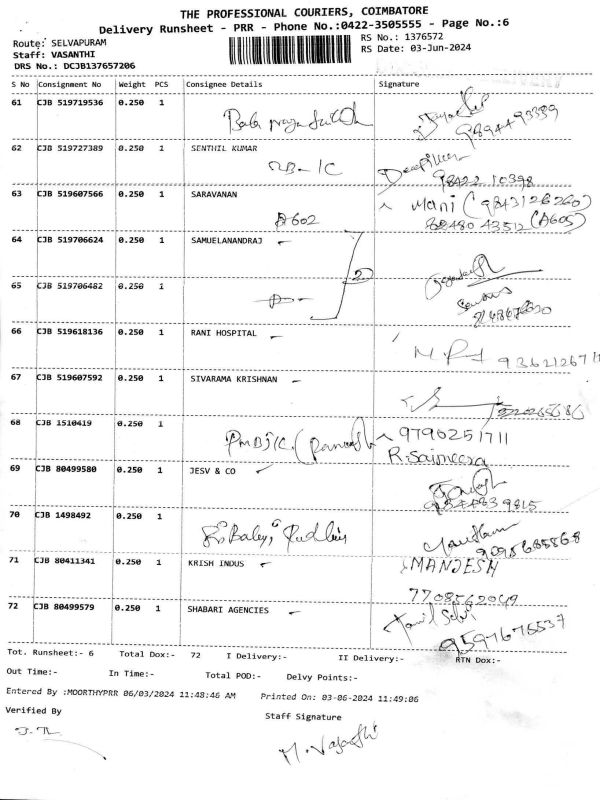 THE PROFESSIONAL COURIERS, COIMBATORE
Delivery Runsheet - PRR - Phone No.:0422-3505555 - Page No.:6
Route: SELVAPURAM
RS No.: 1376572
Staff: VASANTHI
RS Date: 03-Jun-2024
DRS No.: DCJB137657206
S No Consignment No Weight PCS Consignee Details Signature
61 CJB 519719536 0.250 1
9894493359
62 CJB 519727389 0.250 1 SENTHIL KUMAR
98422 10398
63 CJB 519607566 0.250 1 SARAVANAN
A602 Mani (9843126260)
(A605)
64 CJB 519706624 0.250 1 SAMUELANANDRAJ
2
65 CJB 519706482 0.250 1
66 CJB 519618136 0.250 1 RANI HOSPITAL
9362126711
67 CJB 519607592 0.250 1 SIVARAMA KRISHNAN
68 CJB 1510419 0.250 1
9790251711
R. Saimeera
69 CJB 80499580 0.250 1 JESV & CO
9844839815
70 CJB 1498492 0.250 1
71 CJB 80411341 0.250 1 KRISH INDUS MANJESH
7708562049
72 CJB 80499579 0.250 1 SHABARI AGENCIES
Tamil Selvi
9597676537
Tot. Runsheet:- 6 Total Dox:- 72 I Delivery:- II Delivery:- RTN Dox:-
Out Time:- In Time:- Total POD:- Delvy Points:-
Entered By :MOORTHYPRR 06/03/2024 11:48:46 AM Printed On: 03-06-2024 11:49:06
Verified By
Staff Signature
M. Vasanthi